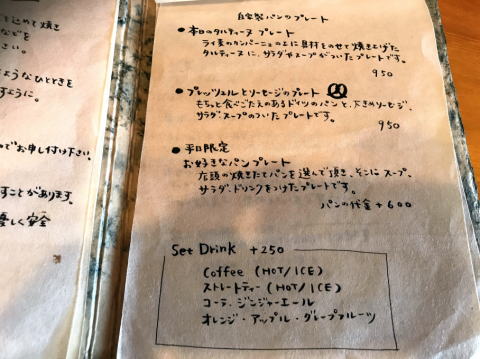 と込めて焼き
などを
さい。
ような ひとときを
すように。
でお申し付け下さい。
すことがあります。
優しく安全
自家製パンのプレート
● 本日のタルティーヌ プレート
ライ麦のカンパーニュの上に具材をのせて焼きあげた
タルティーヌに、サラダやスープがついたプレートです。
950
● プレッツェルとソーセージのプレート
もちっと食べごたえのあるドイツのパンと、大きめソーセージ、
サラダ、スープのついたプレートです。
950
● 平日限定
お好きなパンプレート
店頭の焼きたてパンを選んで頂き、そこに スープ、
サラダ、ドリンクをつけたプレートです。
パンの代金 + 600
Set Drink +250
Coffee (HOT/ICE)
ストレートティー (HOT/ICE)
コーラ・ジンジャーエール
オレンジ・アップル・グレープフルーツ